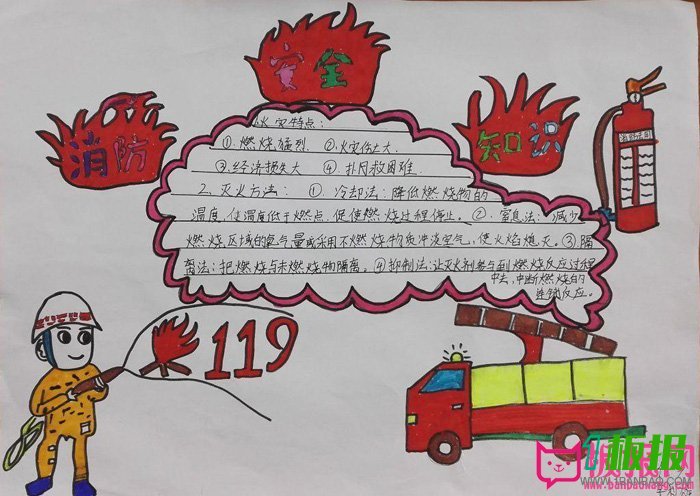 消防
安全
知识
火灾特点:
①燃烧猛烈. ②火灾伤亡大.
③经济损失大 ④扑月救困难.
2、灭火方法: ①冷却法:降低燃烧物的
温度,使温度低于燃点,促使燃烧过程停止。②、窒息法: 减少
燃烧区域的氧气量或采用不燃烧物质冲淡空气,使火焰熄灭。③隔
离法:把燃烧与未燃烧物隔离。④抑制法:让灭火剂参与到燃烧反应过程
中去,中断燃烧的
连锁反应。
119
板报网
www.banbaowang.com